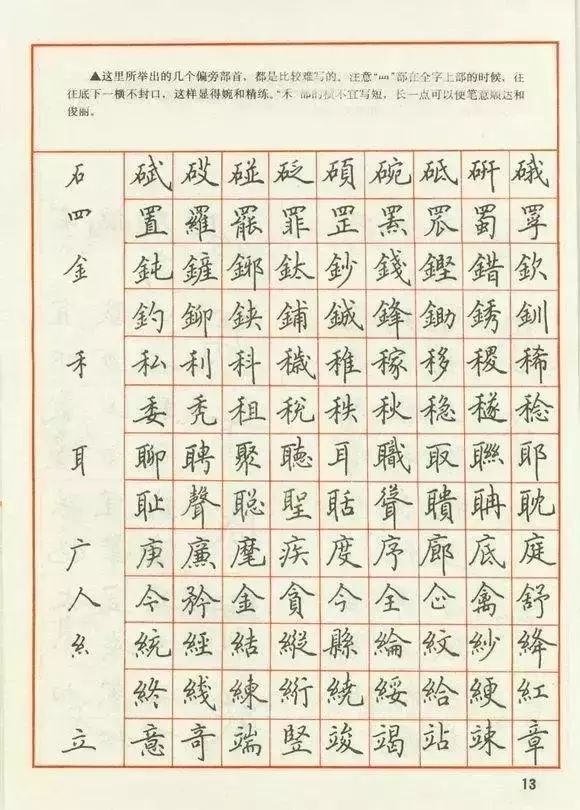 ▲这里所举出的几个偏旁部首，都是比较难写的。注意“罒”部在全字上部的时候，往
往底下一横不封口，这样显得婉和精练。“禾”部的横不宜写短，长一点可以使笔意顺达和
俊丽。
石 碔 碰 砭 碩 碗 砥 硏 硪
罒 置 羅 罷 罪 罡 罴 罛 蜀 罦
金 鈍 鏟 鎯 鈦 鈔 錢 鏗 錯 欽
釣 鉚 鋏 鋪 鋮 鋒 鋤 銹 釧
禾 私 利 科 穢 稚 稼 移 稷 稀
委 秃 租 税 秩 秋 稳 稔
耳 聊 聘 聚 聽 耳 職 取 聯 耶
耻 聲 聪 聖 聒 聳 聵 聃 耽
广 庚 廉 麾 疾 度 序 廊 底 庭
人 令 矜 金 貪 今 全 企 禽 舒
糹 統 經 結 縱 縣 綸 紋 紗 絳
終 綫 練 絎 繞 綏 給 綆 紅
立 意 奇 端 竪 竣 竭 站 竦 章
13